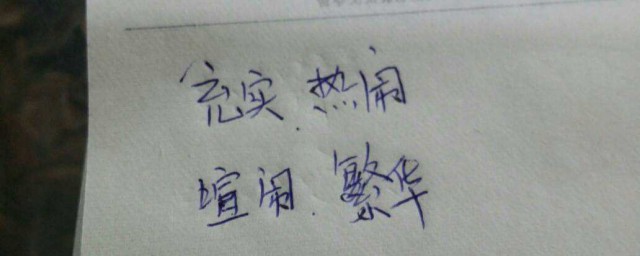 充实.热闹
喧闹.繁华